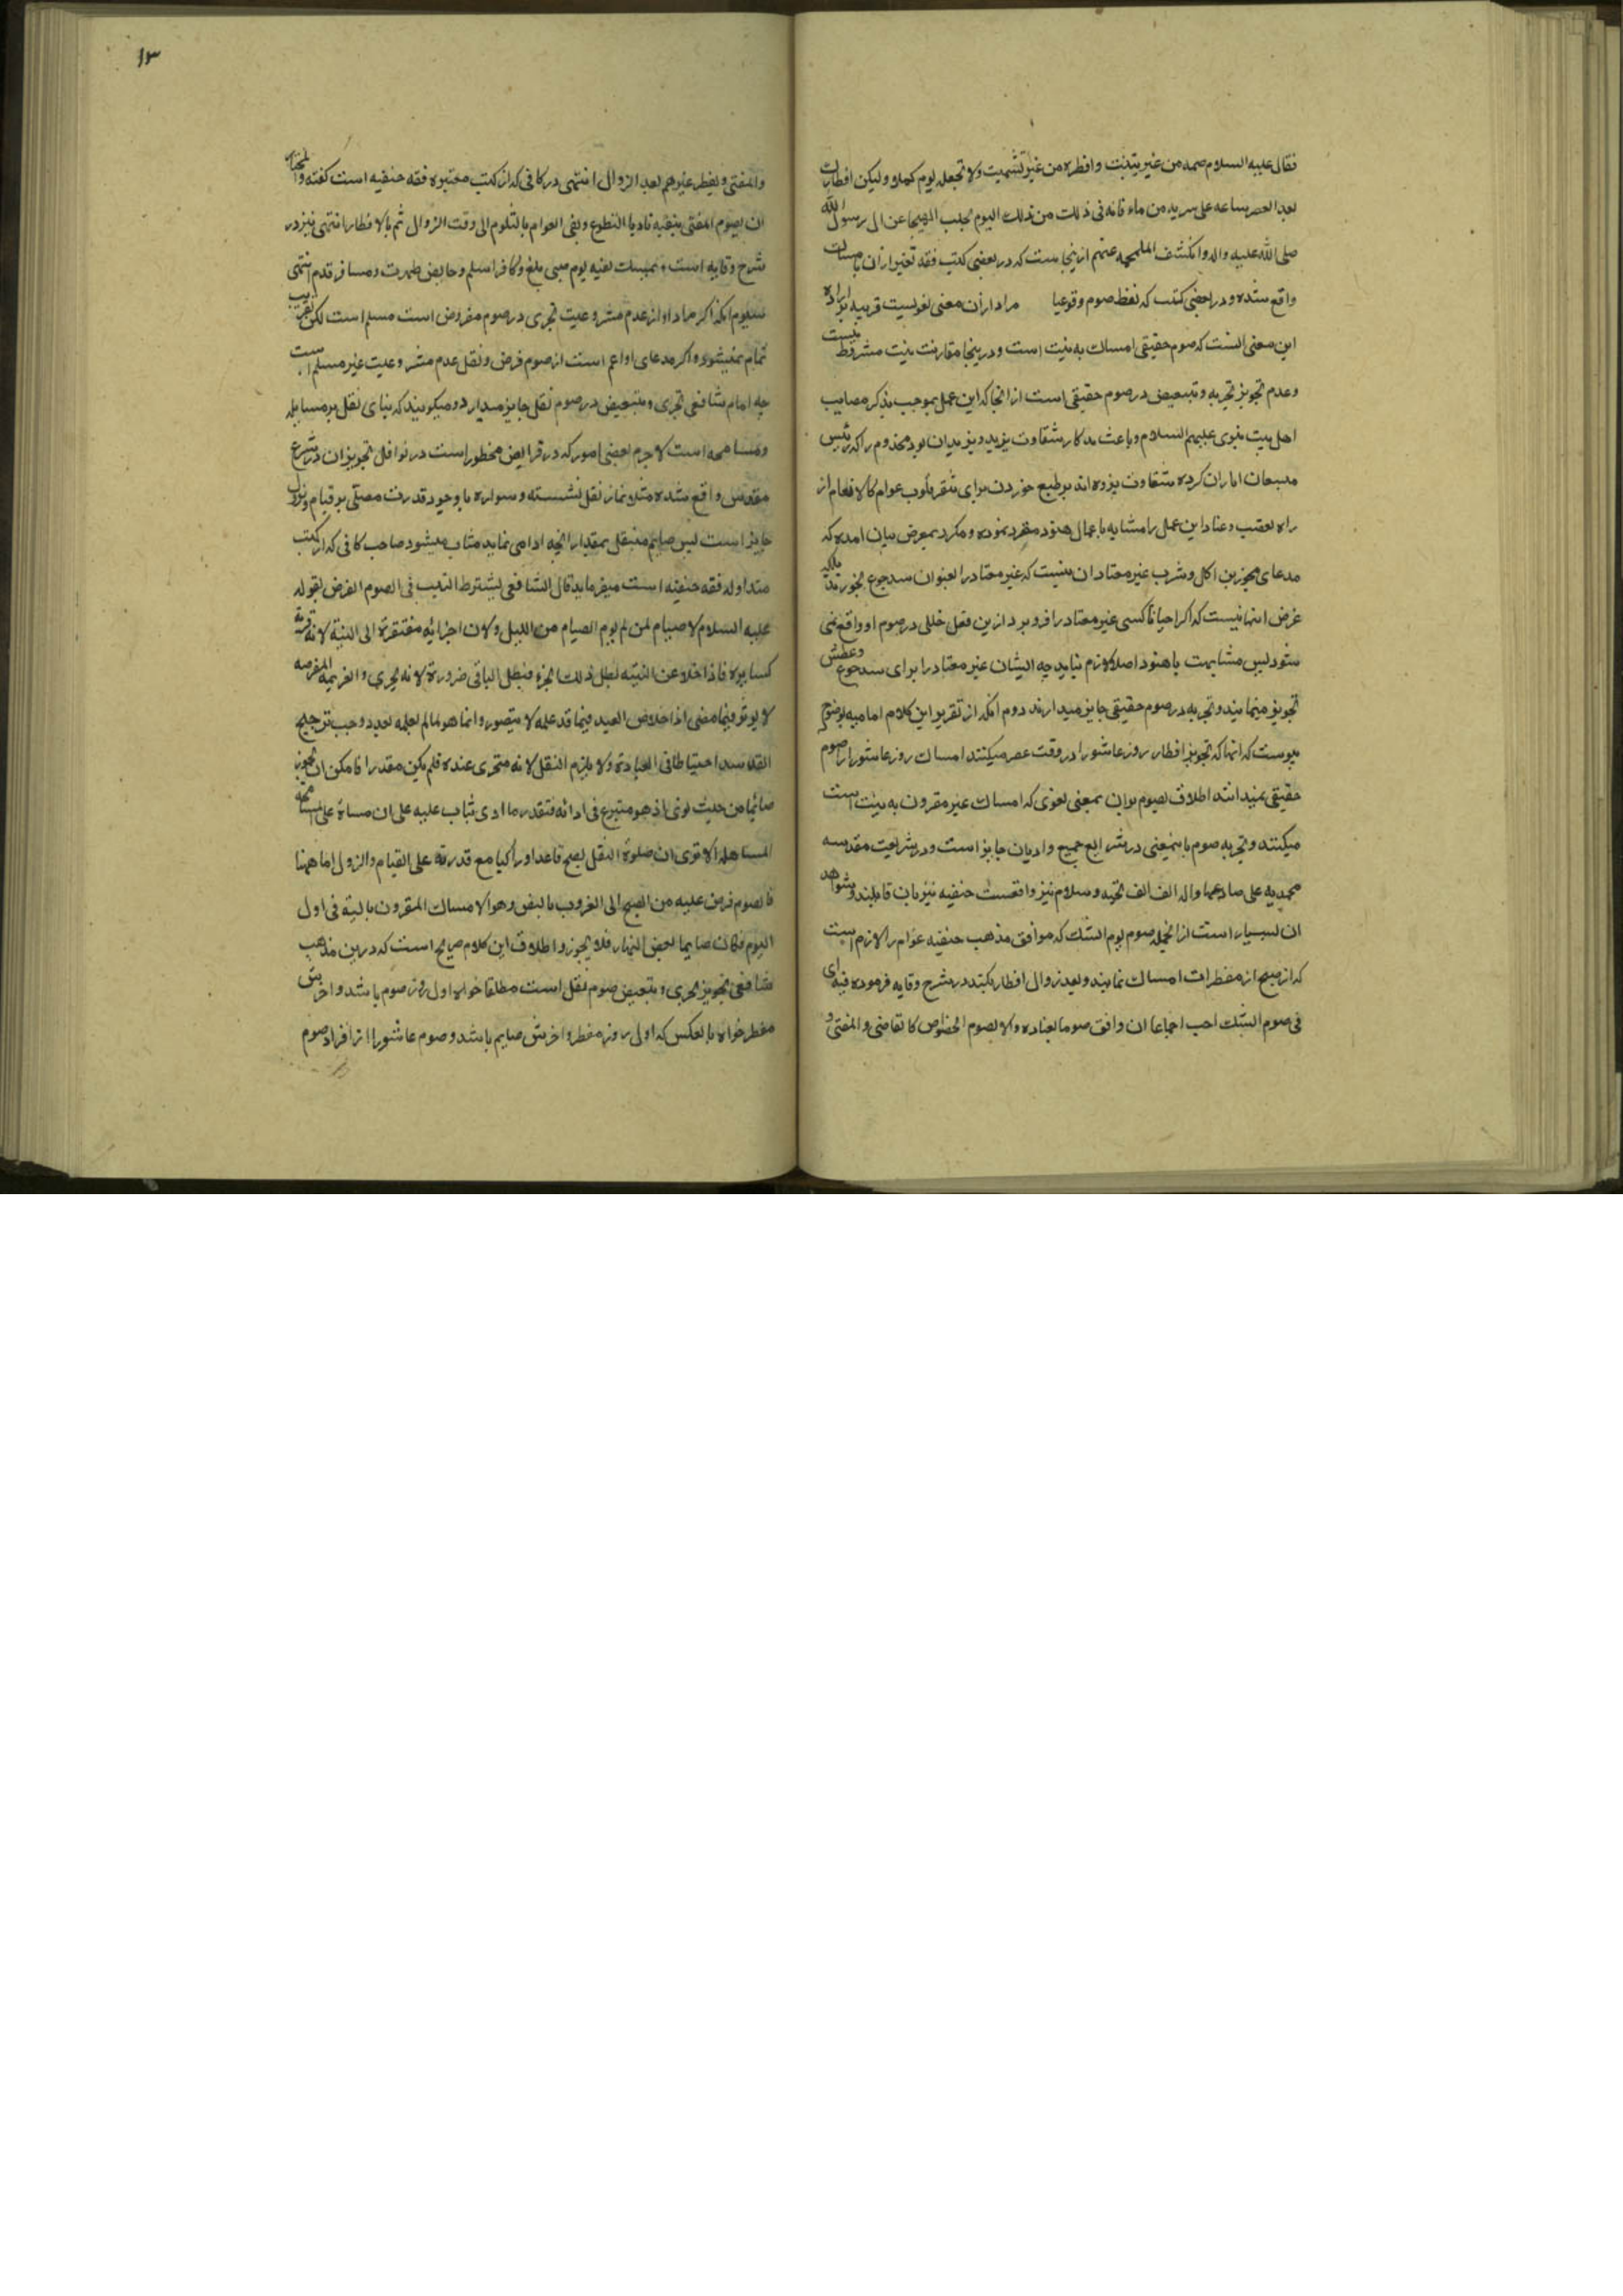 فقال علیه السلام صمه من غیر تبییت و افطره من غیر تشمیت ولا تجعله یوم کملا ولیکن افطارک
بعد العصر بساعه علی شربه من ماء فانه فی ذلک من ذلک الیوم تجلت الهیجا عن ال رسول الله
صلی الله علیه واله وانکشف الملحمه عنهم ازینجاست که در بعضی کتب فقه تعبیر از ان بامساک
واقع شده و در بعضی کتب که لفظ صوم وقوع یا مراد از آن معنی لغویست قرینه بر اراده
این معنی انست که صوم حقیقی امساک به نیت است و درینجا مقارنت نیت مشروط نیست
وعدم تجویز تجزیه و تبعیض در صوم حقیقی است از انجا که این عمل بموجب تذکر مصایب
اهل بیت نبوی علیهم السلام و باعث شقاوت یزید و یزیدیان بود مخدوم را که رئیس
شقاوت یزوده اند بر طبع خوردن برای عوام کالانعام از
راه تعصب و عناد این عمل را مشابه باعمال هنود مقرر نموده و مکرر بمعرض بیان امده که
مدعای مجوزین اکل و شرب غیر معتاد ان نیست که غیر معتاد را بعنوان سد جوع بخورند بلکه
غرض انها نیست که اکر احیانا کسی غیر معتاد را فرو برد ازین فعل خللی در صوم او واقع نمی
شود پس مشابهت باهنود اصلا لازم نیاید چه ایشان غیر معتاد را برای سد جوع و عطش
تجویز مینمایند و تجزیه در صوم حقیقی جایز میدارند دوم انکه از تقریر این کلام امامیه بوضوح
پیوست که انها که تجویز افطار روز عاشورا در وقت عصر میکنند امساک روز عاشورا را صوم
حقیقی نمیدانند اطلاق صوم بران بمعنی لغوی که امساک غیر مقرون به نیت است
میکنند و تجزیه صوم باینمعنی در شرایع جمیع وادیان جایز است و در شریعت مقدسه
محمدیه علی صادعها واله الف الف تحیه و سلام نیز واقعست حنفیه نیز بان قایلند و شواهد
ان بسیار است از انجمله صوم یوم الشک که موافق مذهب حنفیه عوام را لازم است
که از صبح از مفطرات امساک نمایند و بعد زوال افطار بکنند در شرح وقایه فرموده فیه ای
فی صوم الشک احب اجماعا ان وافق صوما یعتاده والا یصوم الخواص کالقاضی والمفتی و
۱۳
والمفتی ویفطر غیرهم بعد الزوال انتهی در کافی که از کتب معتبره فقه حنفیه است گفته والمختار
ان یصوم المفتی بنفسه ناویا التطوع ویفتی العوام بالتلوم الی وقت الزوال ثم بالافطار انتهی نیز در
شرح وقایه است و یمسک بقیه یوم صبی بلغ وکافر اسلم وحایض طهرت ومسافر قدم انتهی
سیوم انکه اکر مراد او از عدم مشروعیت تجزی در صوم مفروض است مسلم است لکن تقریب
تمام نمیشود و اکر مدعای او اعم است از صوم فرض و نفل عدم مشروعیت غیر مسلم است
چه امام شافعی تجزی و تبعیض در صوم نفل جایز میدارد و میکویند که بنای نفل بر مساهله
ومسامحه است لاجرم بعضی امور که در فرایض محظور است در نوافل تجویز ان در شرع
مقدس واقع شده مثلا نماز نفل نشسته و سواره با وجود قدرت مصلی بر قیام و نزول
جایز است پس صایم متنفل بمقدار انچه ادا می نماید مثاب میشود صاحب کافی که از کتب
متداوله فقه حنفیه است میفرماید قال الشافعی یشترط التبییت فی الصوم الفرض لقوله
علیه السلام لا صیام لمن لم ینو الصیام من اللیل ولان اجزائه مفتقرة الی النیة لانه قربة
کسایره فاذا خلا عن النیته بطل ذلک الجزء فبطل الباقی ضرورة لانه لا یجزی والعزیمه المعترضه
لا یوثر فیما مضی اذ اخلاص العبد فیما قد عمله لا یتصور وانما هو لما لم یعمله بعد و وجب ترجیح
الفساد احتیاطا فی العبادة ولا یلزم النفل لانه متجزی عنده فلم یکن مقدرا فامکن ان یکون
صائما من حیث نوی اذ هو متبرع فی ادائه فبقدر ما ادی یثاب علیه علی ان مبناه علی المسامحه
المساهله الا تری ان صلوة النفل یصح قاعدا و راکبا مع قدرته علی القیام والنزول اما ههنا
فالصوم فرض علیه من الصبح الی الغروب بالنص وهو الامساک المقرون بالنیة فی اول
الیوم فکان صایما بعض النهار فلا یجوز و اطلاق این کلام صریح است که درین مذهب
شافعی تجویز تجزی و تبعیض صوم نفل است مطلقا خواه اول روز صوم باشد و اخرش
مفطر خواه بالعکس که اول روز مفطر و اخرش صایم باشد و صوم عاشورا از افراد صوم